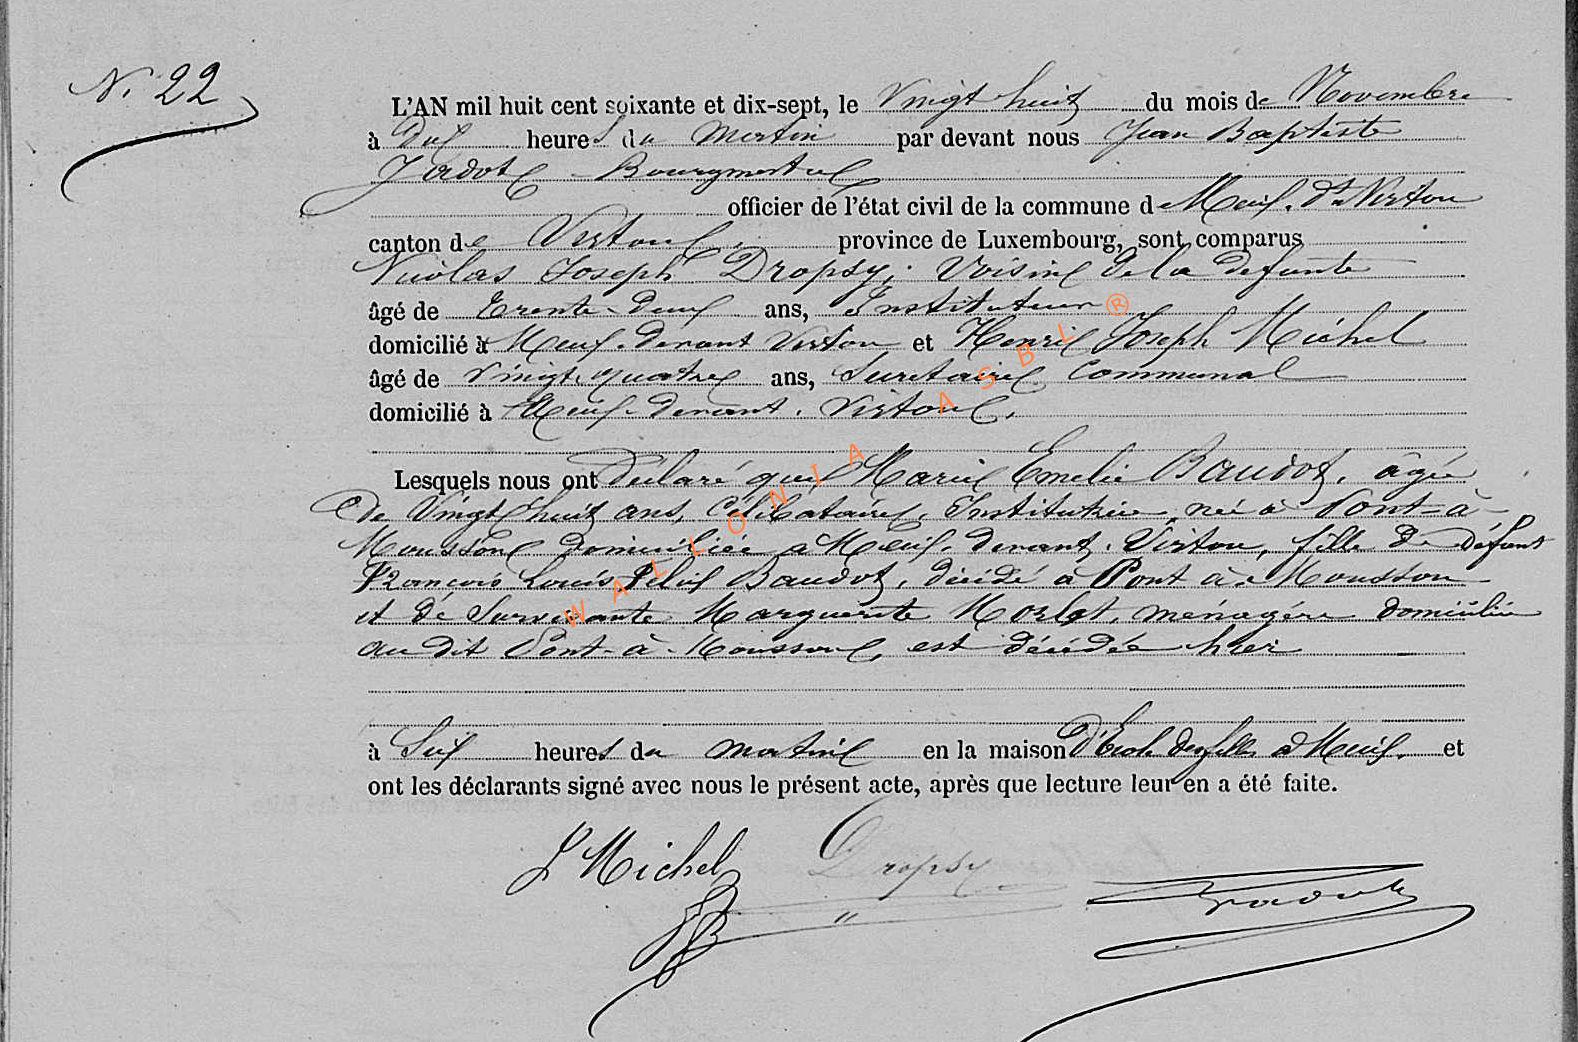 N. 22
L'AN mil huit cent soixante et dix-sept, le Vingt huit du mois de Novembre
à dix heures du Matin par devant nous Jean Baptiste
Jadot Bourgmestre
officier de l'état civil de la commune de Meix. dt Virton
canton de Virton, province de Luxembourg, sont comparus
Nicolas Joseph Dropsy, Voisin de la défunte
âgé de Trente-deux ans, Instituteur
domicilié à Meix-devant Virton et Henri Joseph Michel
âgé de Vingt-quatre ans, Secrétaire Communal
domicilié à Meix-devant. Virton.
Lesquels nous ont Déclaré que Marie Emelie Baudot, âgée
de Vingt huit ans, Célibataire, Institutrice, née à Pont-à-
Mousson domiciliée à Meix. devant. Virton, fille de défunt
François Louis Félix Baudot, décédé à Pont à-Mousson
et de Survivante Marguerite Morlot, ménagère domiciliée
au dit Pont-à-Mousson, est décédée hier
à Six heures du matin en la maison d'École des filles à Meix. et
ont les déclarants signé avec nous le présent acte, après que lecture leur en a été faite.
J Michel Dropsy Jadot
WALLONIA ASBL ®